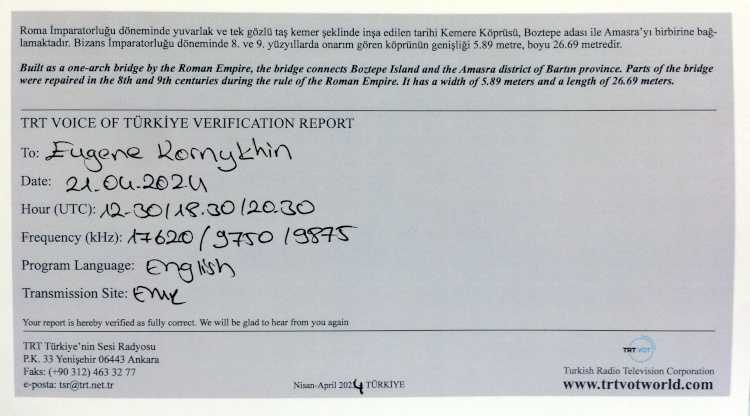 Roma İmparatorluğu döneminde yuvarlak ve tek gözlü taş kemer şeklinde inşa edilen tarihi Kemere Köprüsü, Boztepe adası ile Amasra'yı birbirine bağ-
lamaktadır. Bizans İmparatorluğu döneminde 8. ve 9. yüzyıllarda onarım gören köprünün genişliği 5.89 metre, boyu 26.69 metredir.
Built as a one-arch bridge by the Roman Empire, the bridge connects Boztepe Island and the Amasra district of Bartın province. Parts of the bridge
were repaired in the 8th and 9th centuries during the rule of the Roman Empire. It has a width of 5.89 meters and a length of 26.69 meters.
TRT VOICE OF TÜRKİYE VERIFICATION REPORT
To: Eugene Kornykhin
Date: 21.04.2024
Hour (UTC): 12.30/18.30/20.30
Frequency (kHz): 17620/9750/9875
Program Language: English
Transmission Site: EMR
Your report is hereby verified as fully correct. We will be glad to hear from you again
TRT Türkiye'nin Sesi Radyosu
P.K. 33 Yenişehir 06443 Ankara
Faks: (+90 312) 463 32 77
e-posta: tsr@trt.net.tr
Nisan-April 2024 TÜRKİYE
TRT VOT
Turkish Radio Television Corporation
www.trtvotworld.com